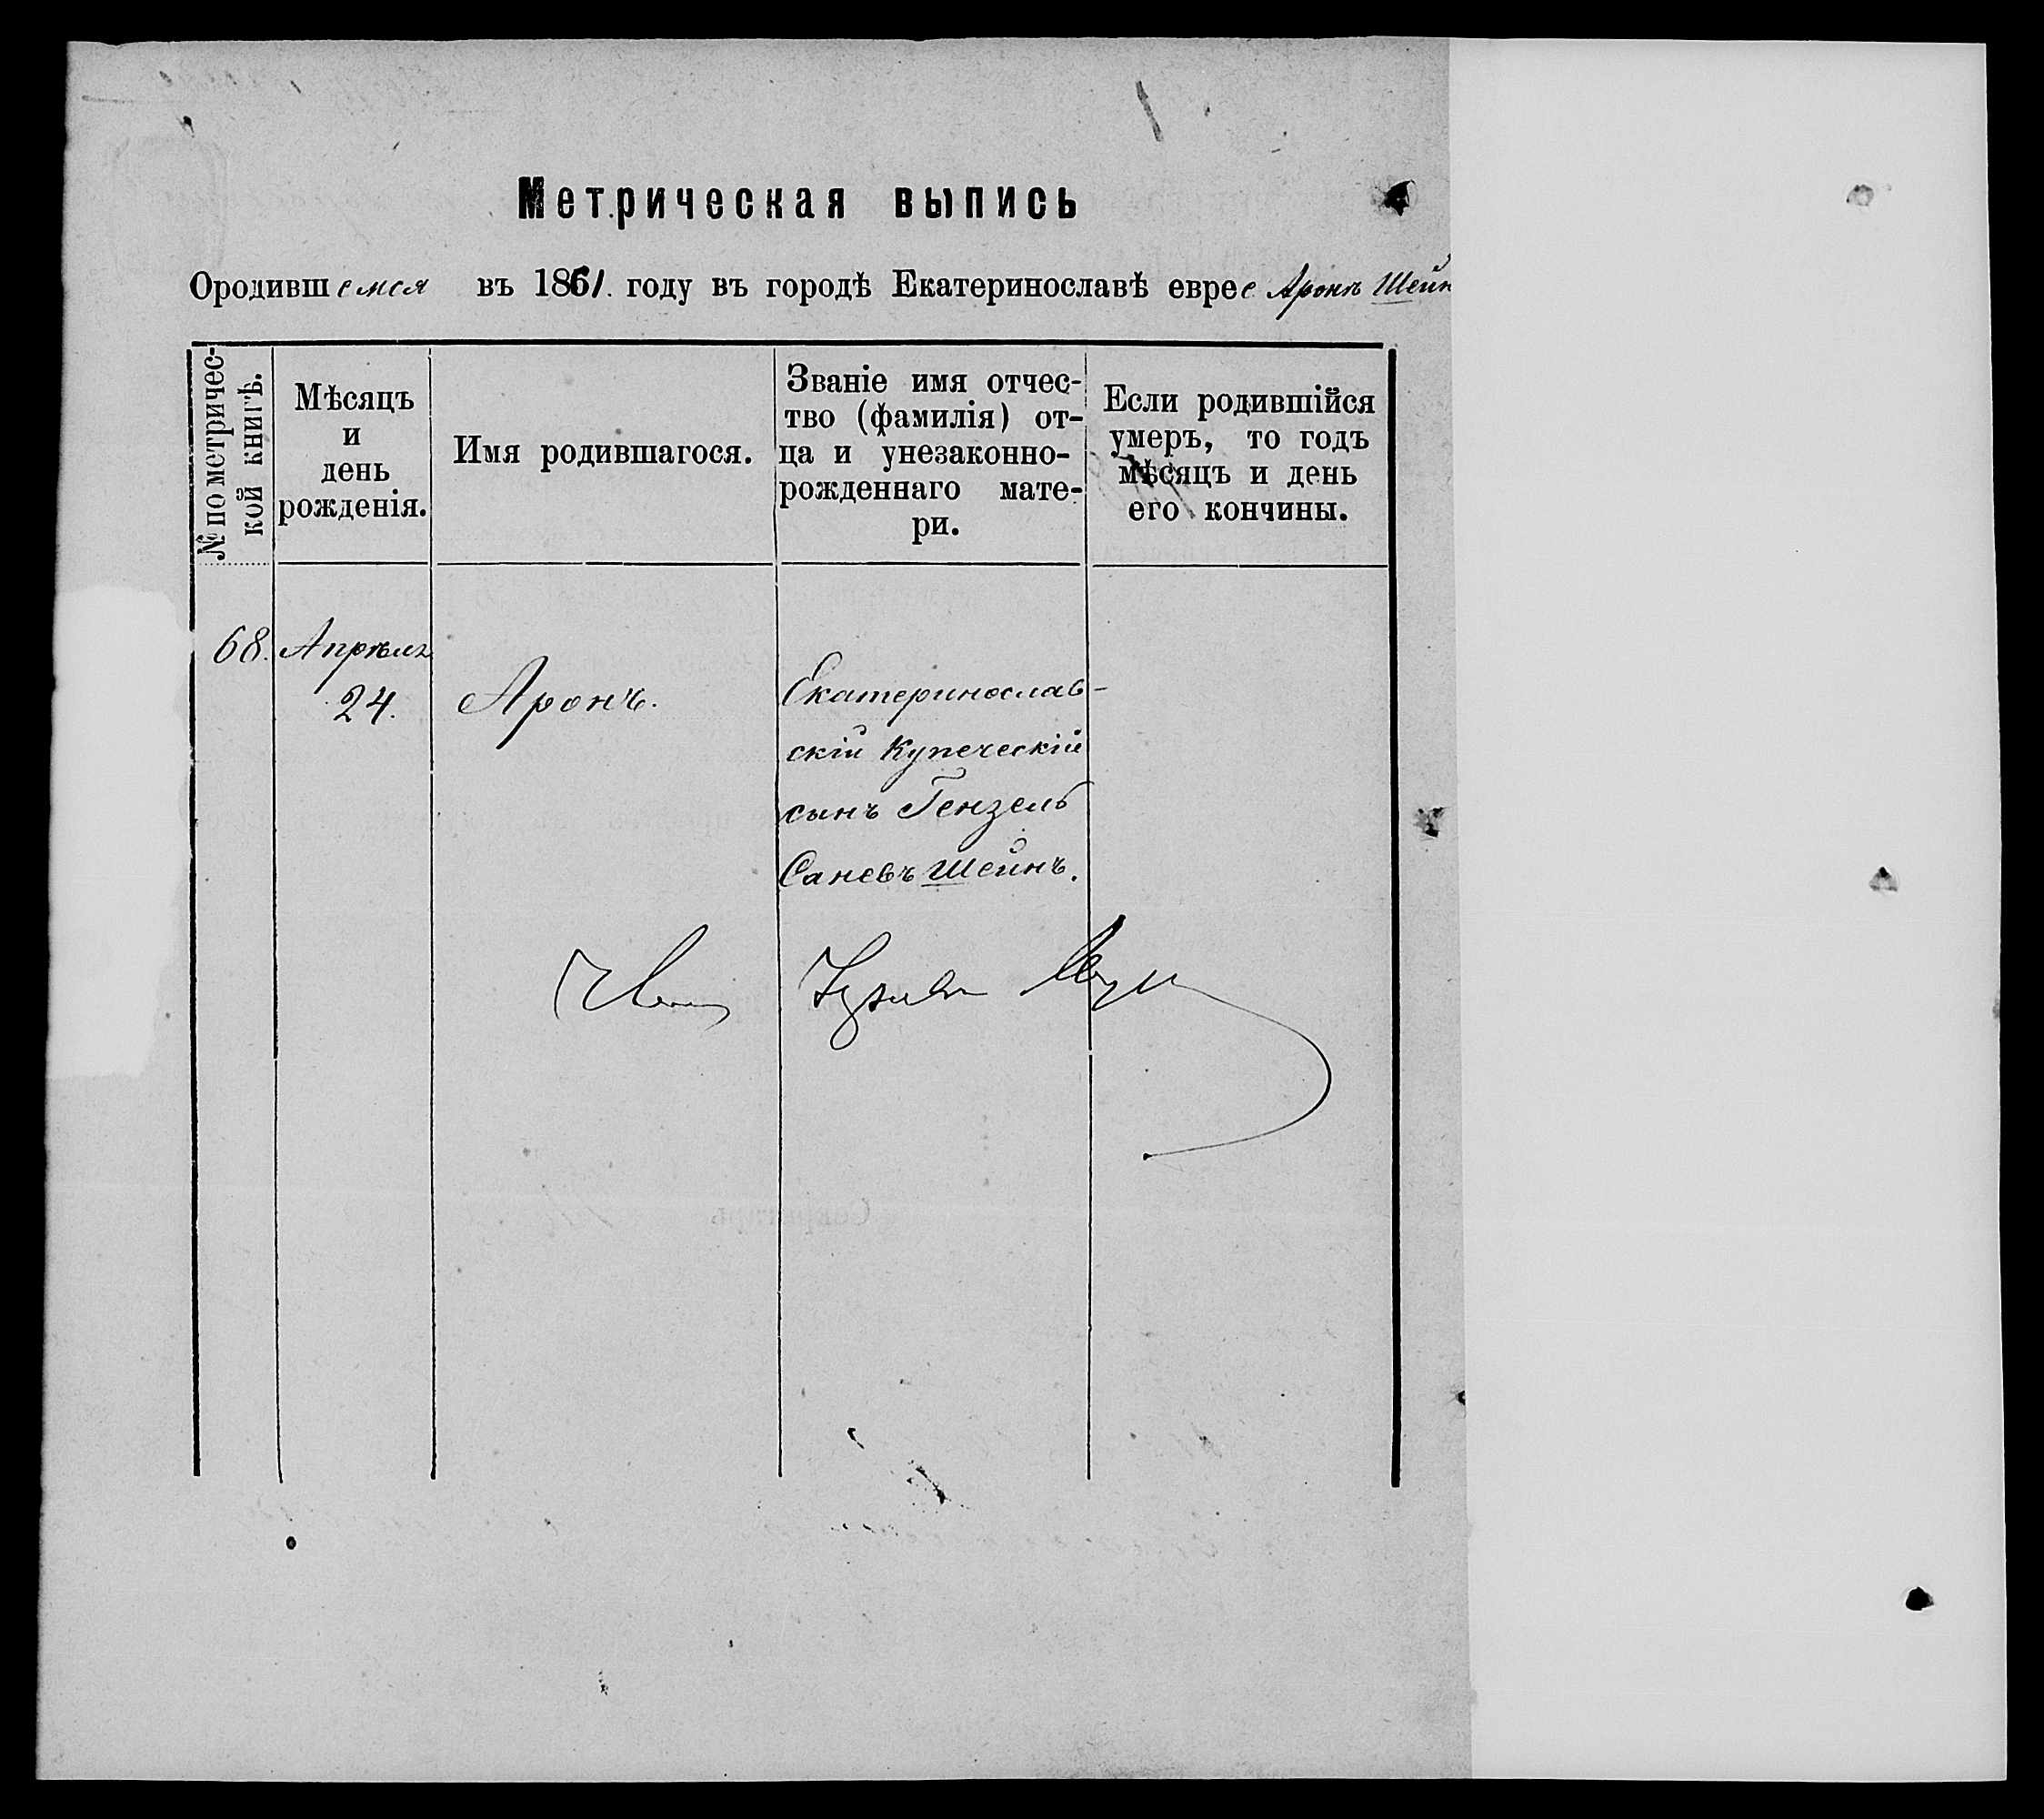 Метрическая выпись
Ородившемся въ 1861. году въ городѣ Екатеринославѣ еврее Аронѣ Шейн
№ по метричес-
кой книгѣ.
Мѣсяцъ
и
день
рожденія.
Имя родившагося.
Званіе имя отчес-
тво (фамилія) от-
ца и унезаконно-
рожденнаго мате-
ри.
Если родившійся
умеръ, то годъ
мѣсяцъ и день
его кончины.
68.
Апрѣля
24.
Аронъ.
Екатеринослав-
скій Купеческій
сынъ Гензель
Саневъ Шейнъ.